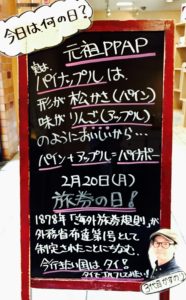 今日は何の日?
元祖PPAP
実は、
パイナップルは、
形が松かさ(パイン)
味がりんご(アップル)
のようにおいしいから…
パイン+アップル=パイナポー
2月20日(月)
旅券の日!
1878年「海外旅券規則」が
外務省布達第1号として
制定されたことにちなむ、
今行きたい国はタイ!
```